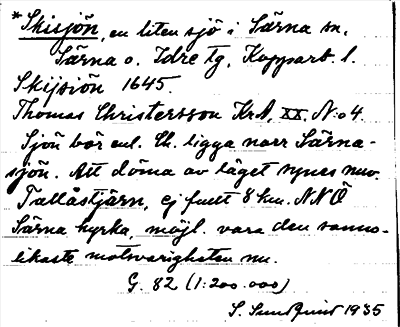 *Skisjön, en liten sjö i Särna sn,
Särna o. Idre tg, Kopparb. l.
Skijsiön 1645.
Thomas Christersson KrA, XX. N:o 4.
Sjön bör enl. Ch. ligga norr Särna-
sjön. Att döma av läget synes nuv.
Tallåstjärn, ej fullt 8 km. NNÖ
Särna kyrka, möjl. vara den sanno-
likaste motsvarigheten nu.
G. 82 (1:200.000)
S. Sundquist 1935